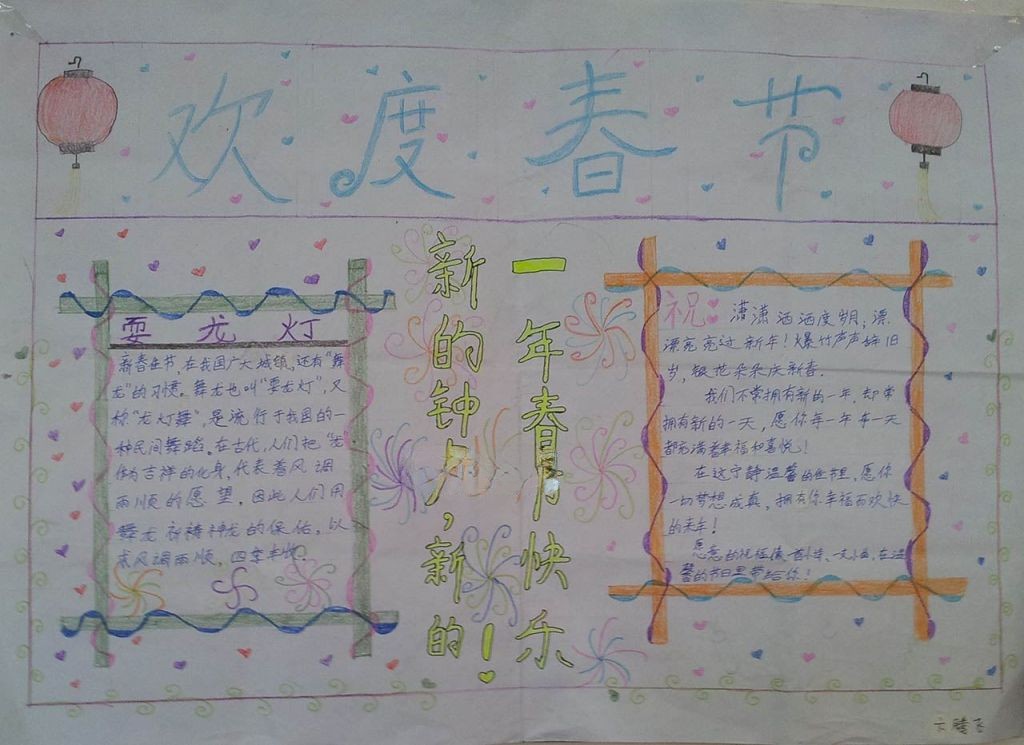 欢度春节
耍龙灯
新春佳节,在我国广大城镇,还有“舞
龙”的习惯。舞龙也叫“耍龙灯”,又
称“龙灯舞”,是流行于我国的一
种民间舞蹈。在古代,人们把“龙”
作为吉祥的化身,代表着风调
雨顺的愿望,因此人们用
舞龙祈祷神龙的保佑,以
求风调雨顺,四季丰收。
新的钟声,新的
一年春青快乐!
祝 潇潇洒洒度明,漂
漂亮亮过新年!爆竹声声除旧
岁,银花朵朵庆新春。
我们不常拥有新的一年,却常
拥有新的一天,愿你每一年每一天
都充满着幸福和喜悦!
在这宁静温馨的佳节里,愿你
一切梦想成真,拥有你幸福而欢快
的来年!
的祝福
馨的节日里带给你!
腾飞